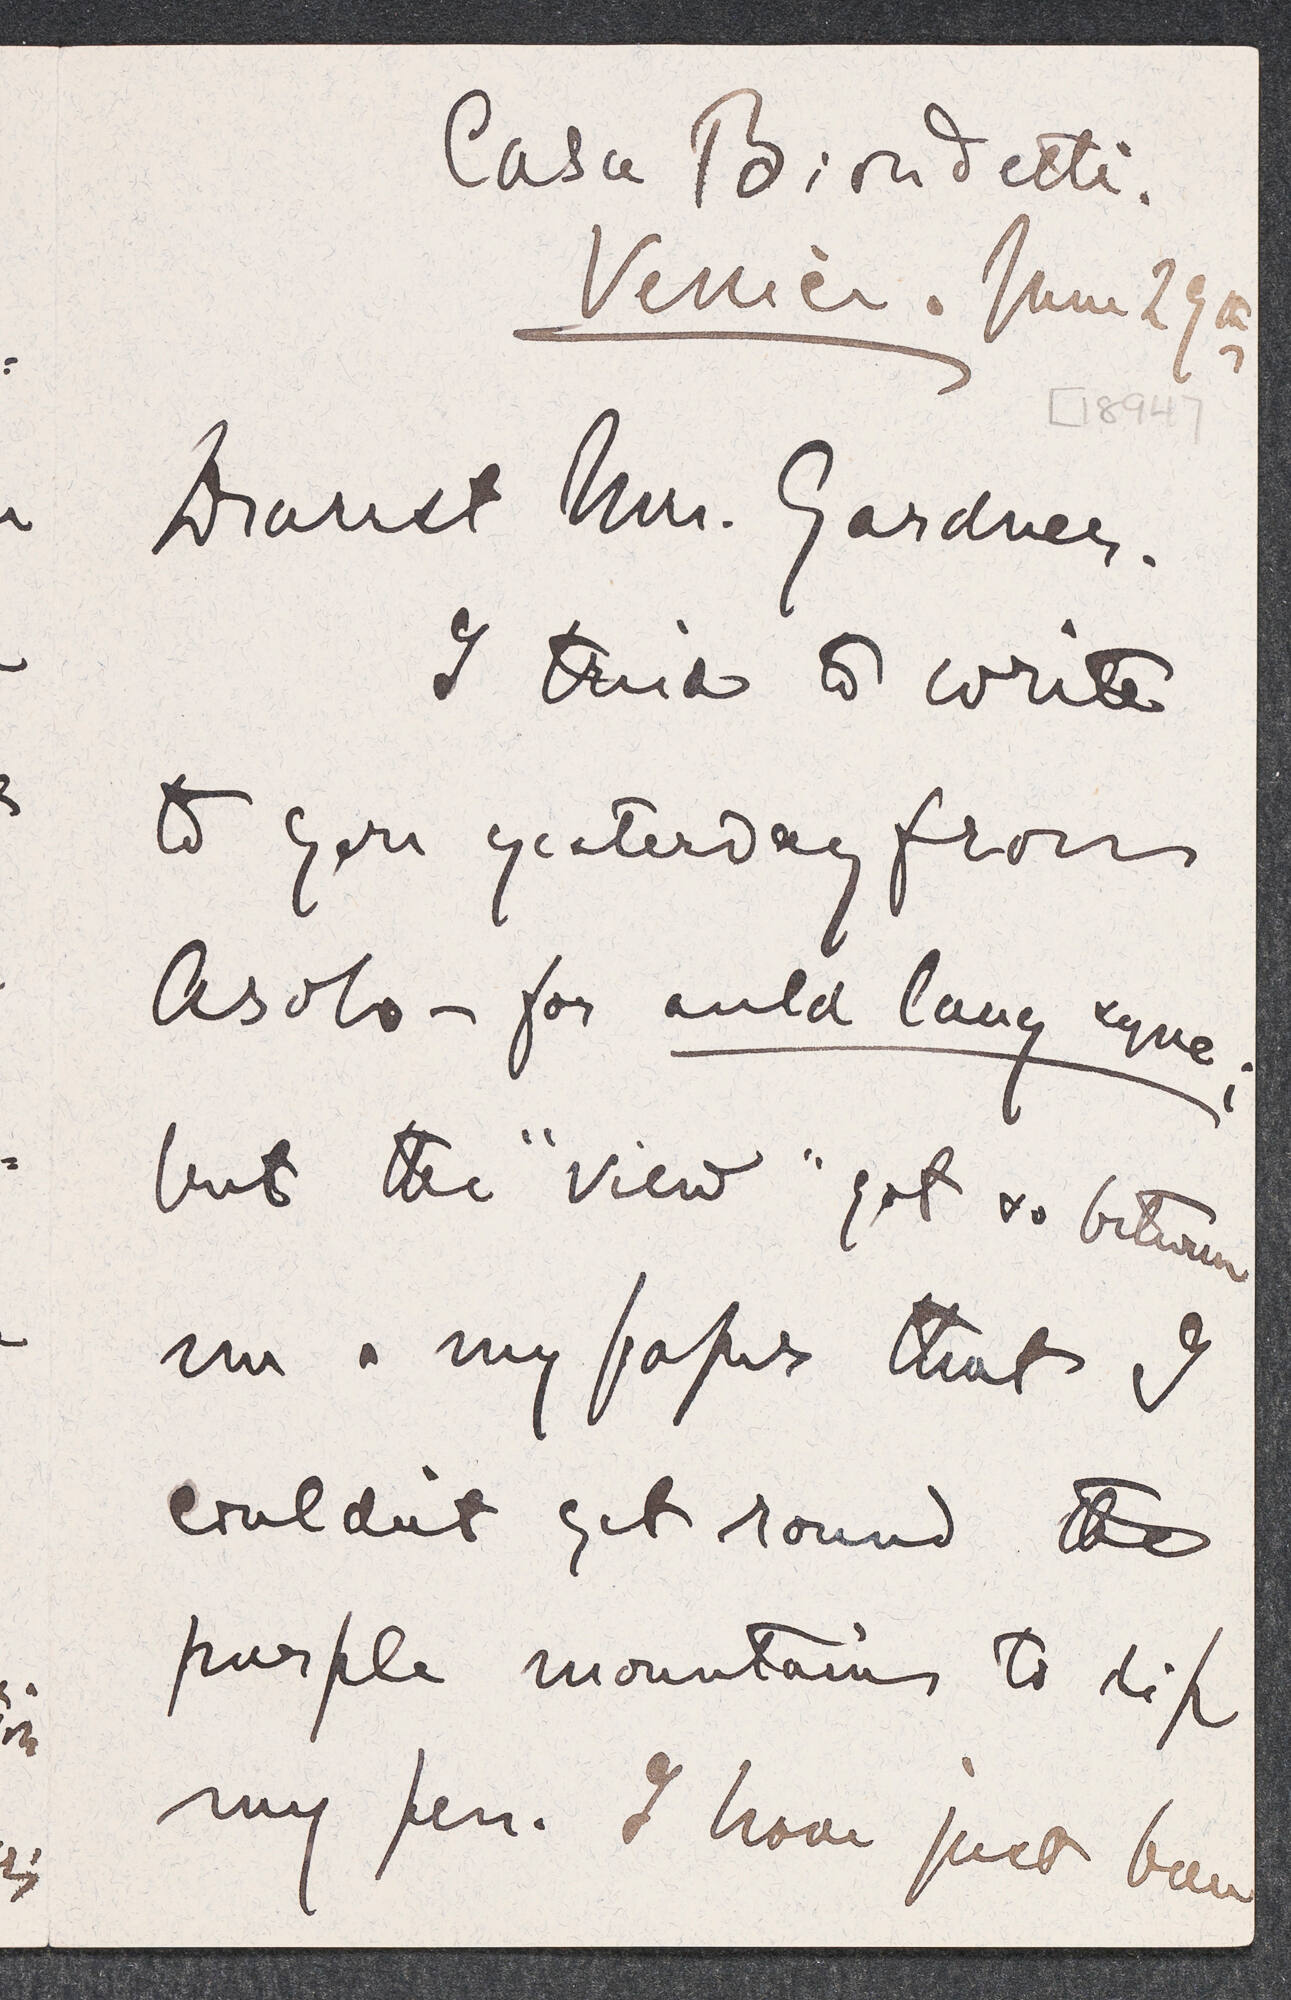 Casa Biondetti.
Venice. June 29th
[1894]
Dearest Mrs. Gardner.
I tried to write
to you yesterday from
Asolo - for auld lang syne;
but the "view" got so between
me & my paper that I
couldn't get round the
purple mountains to dip
my pen. I have just been